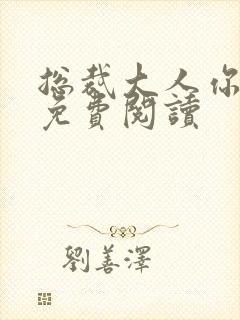 總裁大人你
免費閱讀
劉善澤